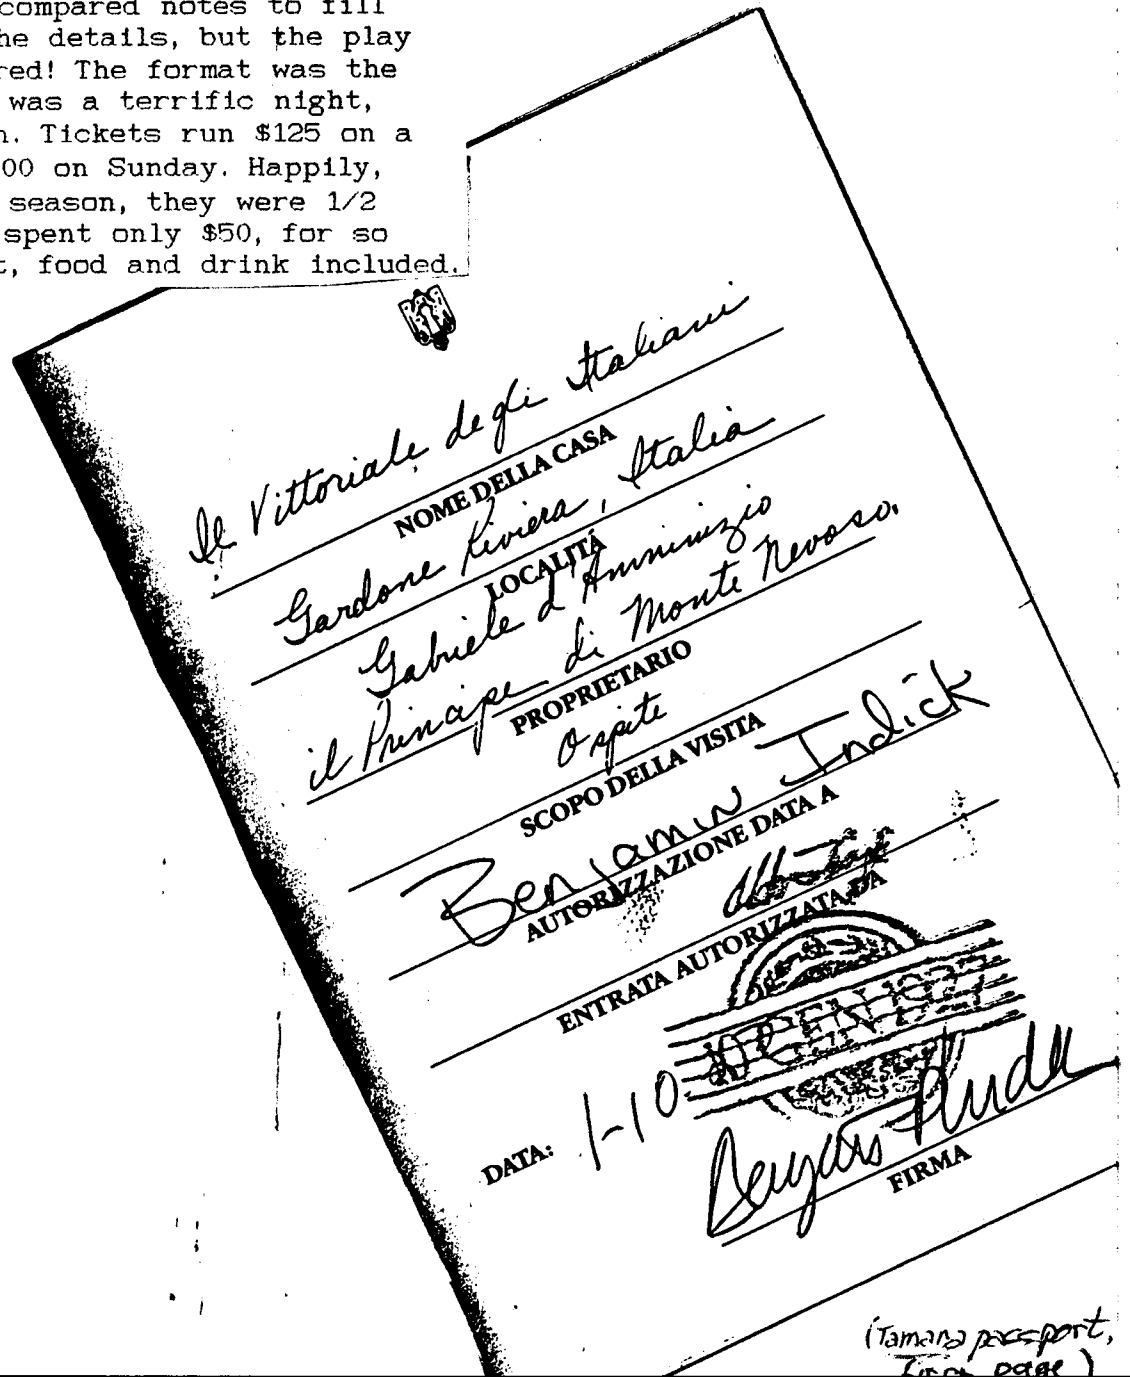 compared notes to fill
he details, but the play
red! The format was the
was a terrific night,
n. Tickets run $125 on a
00 on Sunday. Happily,
season, they were 1/2
spent only $50, for so
t, food and drink included.
Il Vittoriale degli Italiani
NOME DELLA CASA
Gardone Riviera, Italia
LOCALITÁ
Gabriele d'Annunzio
il Principe di Monte Nevoso.
PROPRIETARIO
Ospite
SCOPO DELLA VISITA
Benjamin Indick
AUTORIZZAZIONE DATA A
ENTRATA AUTORIZZATA DA
DATA: 1-10
FIRMA
(Tamara passport,
page)